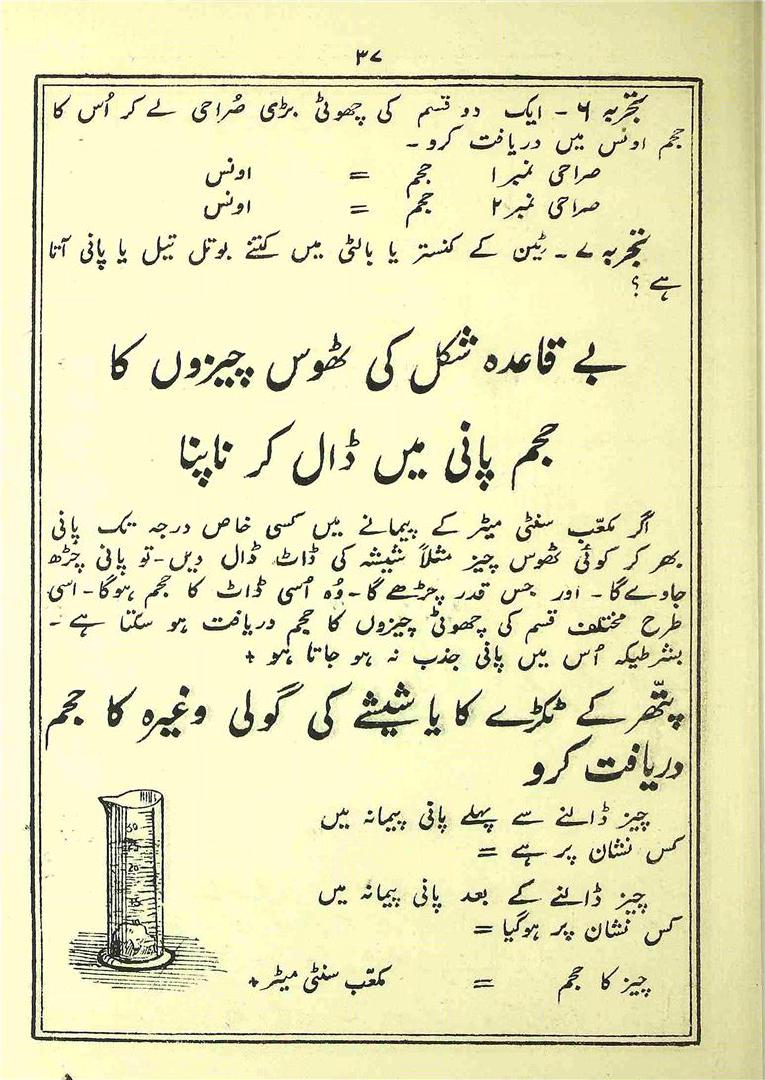 ۳۷
تجربہ ۶ - ایک دو قسم کی چھوٹی بڑی صُراحی لے کر اُس کا
حجم اونس میں دریافت کرو -
صراحی نمبر ۱ حجم = اونس
صراحی نمبر ۲ حجم = اونس
تجربہ ۷ - ٹین کے کنستر یا بالٹی میں کتنے بوتل تیل یا پانی آتا
ہے ؟
بے قاعدہ شکل کی ٹھوس چیزوں کا
حجم پانی میں ڈال کر ناپنا
اگر مکعّب سنٹی میٹر کے پیمانے میں کسی خاص درجہ تک پانی
بھر کر کوئی ٹھوس چیز مثلاً شیشہ کی ڈاٹ ڈال دیں - تو پانی چڑھ
جاوے گا - اور جس قدر چڑھے گا - وُہ اُسی ڈاٹ کا حجم ہوگا - اسی
طرح مختلف قسم کی چھوٹی چیزوں کا حجم دریافت ہو سکتا ہے -
بشرطیکہ اُس میں پانی جذب نہ ہو جاتا ہو +
پتّھر کے ٹکڑے کا یا شیشے کی گولی وغیرہ کا حجم
دریافت کرو
چیز ڈالنے سے پہلے پانی پیمانہ میں
کس نشان پر ہے =
چیز ڈالنے کے بعد پانی پیمانہ میں
کس نشان پر ہوگیا =
چیز کا حجم = مکعّب سنٹی میٹر +
30
25
20
15
10